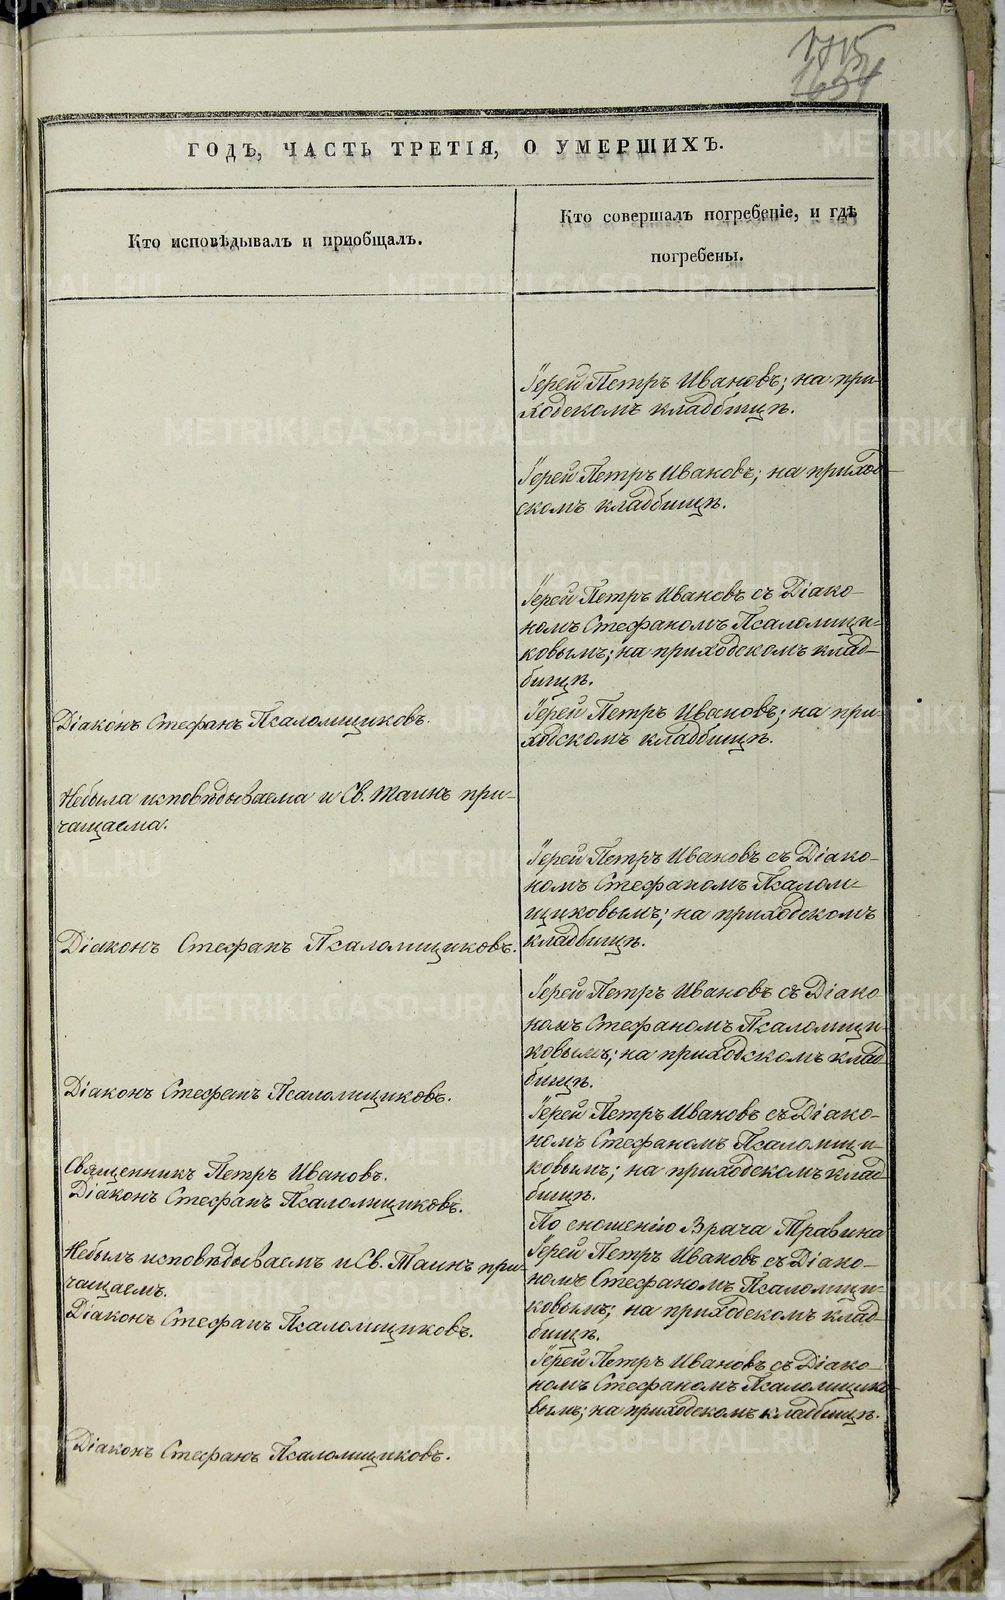 1715
1654
ГОДЪ, ЧАСТЬ ТРЕТІЯ, О УМЕРШИХЪ.
Кто исповѣдывалъ и пріобщалъ.
Кто совершалъ погребеніе, и гдѣ
погребены.
Іерей Петръ Ивановъ; на при-
ходскомъ кладбищѣ.
Іерей Петръ Ивановъ; на приход-
скомъ кладбищѣ.
Іерей Петръ Ивановъ съ Діако-
номъ Стефаномъ Псаломщи-
ковымъ; на приходскомъ клад-
бищѣ.
Діаконъ Стефанъ Псаломщиковъ.
Іерей Петръ Ивановъ; на при-
ходскомъ кладбищѣ.
Небыла исповѣдываема и Св. Таинъ при-
чащаема.
Іерей Петръ Ивановъ съ Діако-
номъ Стефаномъ Псалом-
щиковымъ; на приходскомъ
кладбищѣ.
Діаконъ Стефанъ Псаломщиковъ.
Іерей Петръ Ивановъ съ Діако
номъ Стефаномъ Псаломщи-
ковымъ; на приходскомъ клад
бищѣ.
Діаконъ Стефанъ Псаломщиковъ.
Іерей Петръ Ивановъ съ Діако-
номъ Стефаномъ Псаломщи-
ковымъ; на приходскомъ клад
бищѣ.
Священникъ Петръ Ивановъ.
Діаконъ Стефанъ Псаломщиковъ.
По сношенію Врача Травина
Іерей Петръ Ивановъ съ Діако-
номъ Стефаномъ Псаломщи-
ковымъ; на приходскомъ клад-
бищѣ.
Небылъ исповѣдываемъ и Св. Таинъ при-
чащаемъ.
Діаконъ Стефанъ Псаломщиковъ.
Іерей Петръ Ивановъ съ Діако-
номъ Стефаномъ Псаломщико-
вымъ; на приходскомъ кладбищѣ.
Діаконъ Стефанъ Псаломщиковъ.
METRIKI.GASO-URAL.RU